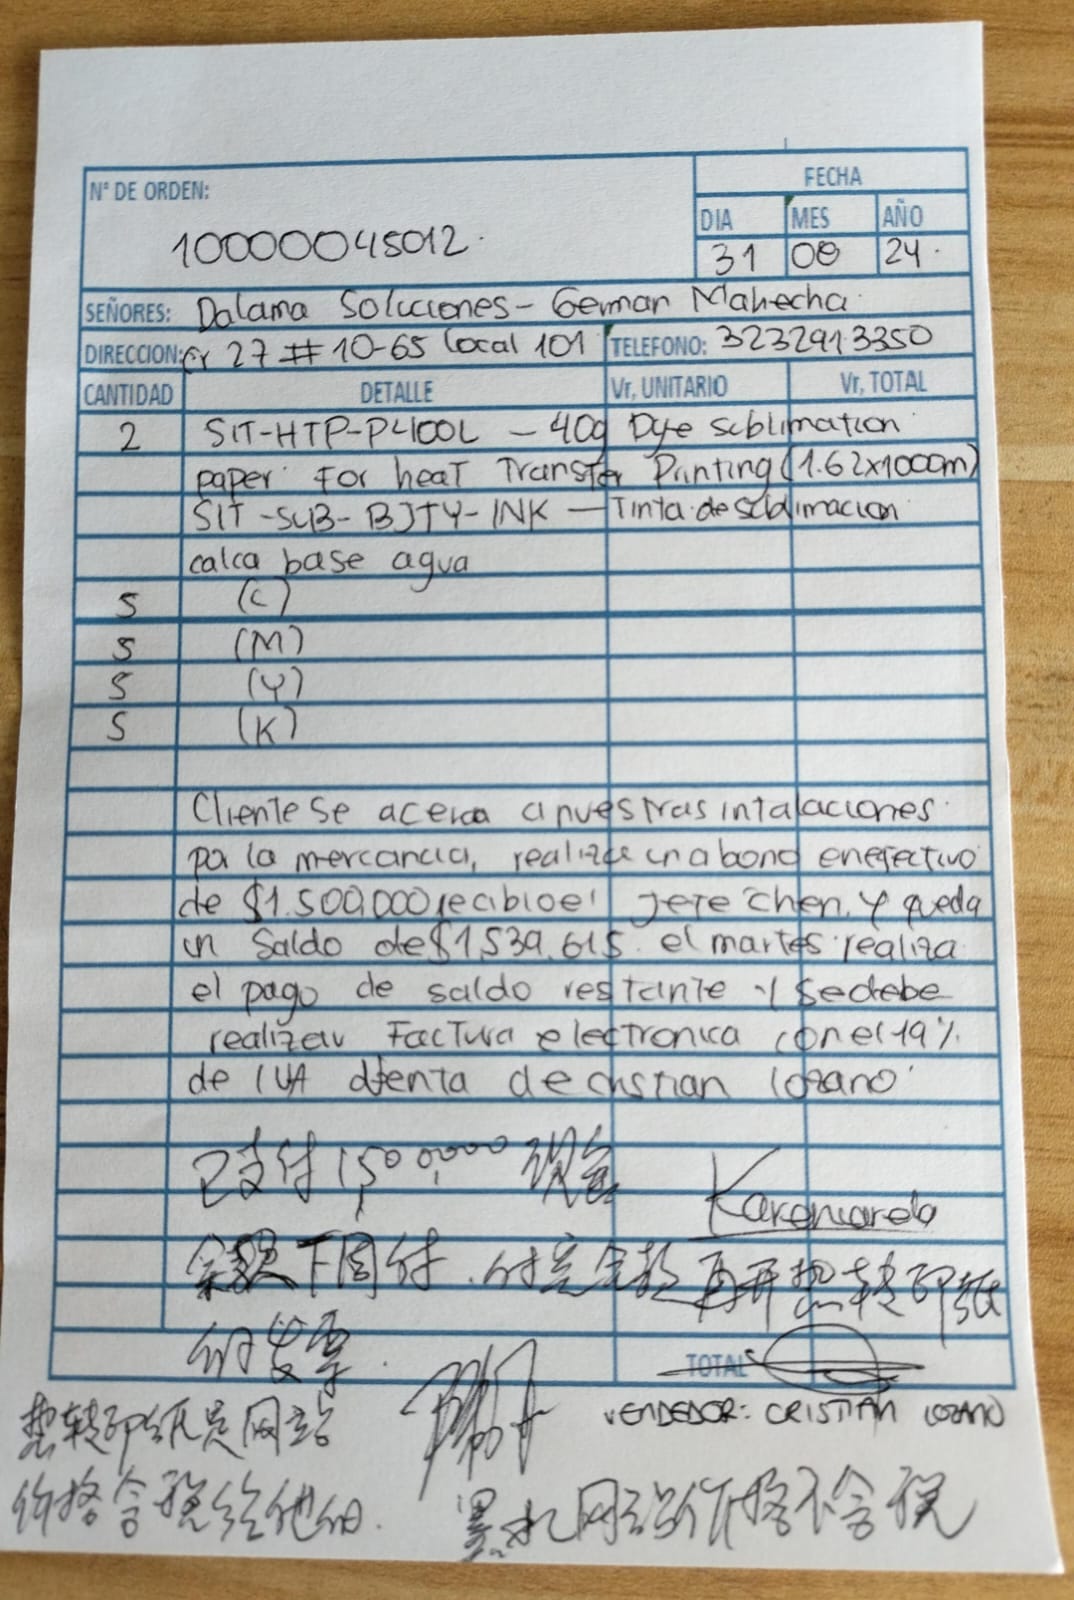 FECHA
N° DE ORDEN:
DIA MES AÑO
10000045012.
31 08 24.
SEÑORES: Dalama Soluciones - German Mahecha.
DIRECCION: Cr 27 # 10-65 Local 101 TELEFONO: 3232913350
CANTIDAD DETALLE Vr, UNITARIO Vr, TOTAL
2 SIT-HTP-P4100L - 40g Dye sublimation
paper For heat Transfer Printing (1.62x1000m)
SIT-SUB-BJTY-INK - Tinta de sublimacion
calca base agua
5 (C)
5 (M)
5 (Y)
5 (K)
Cliente se acerca a nuestras intalaciones
por la mercancia, realiza un abono en efectivo
de $1.500,000 recibio el Jefe Chen, y queda
un Saldo de $1,539,615. el martes realiza
el pago de saldo restante y se debe
realizar Factura electronica con el 19%
de IVA de cristian lozano
已支付1,500,000 现金
Karen
余款下周付,付完余款再开热转印纸
的发票.
TOTAL
热转印纸是网站
VENDEDOR: CRISTIAN LOZANO
价格含税给他的.
墨水网站价格不含税